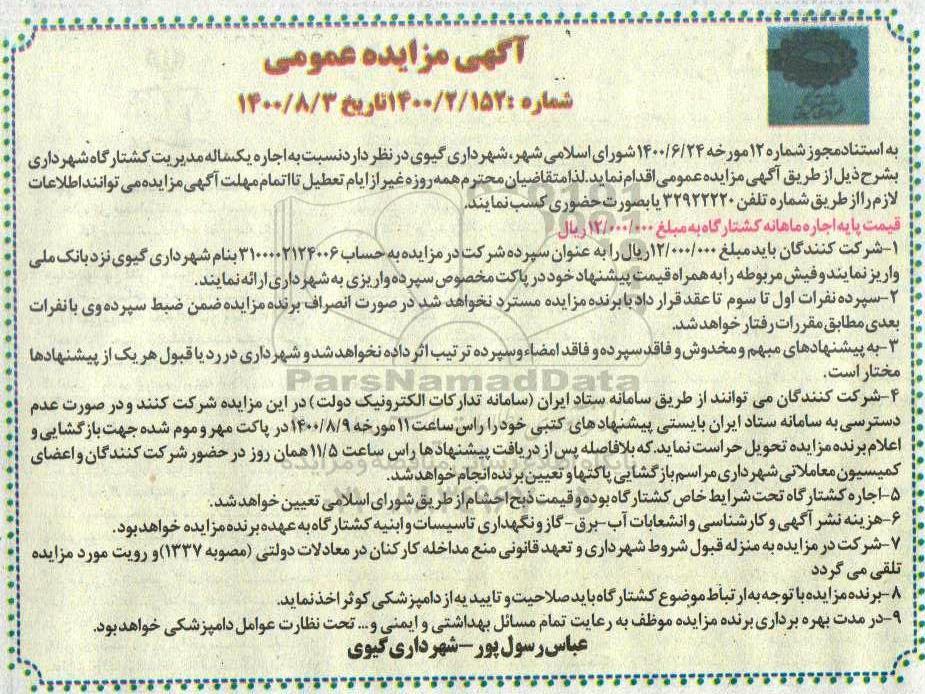 آگهی مزایده عمومی
شماره :۱۴۰۰/۲/۱۵۲تاریخ ۱۴۰۰/۸/۳
به استناد مجوز شماره ۱۲ مورخه ۱۴۰۰/۶/۲۴ شورای اسلامی شهر، شهرداری گیوی در نظر دارد نسبت به اجاره یکساله مدیریت کشتارگاه شهرداری
بشرح ذیل از طریق آگهی مزایده عمومی اقدام نماید. لذا متقاضیان محترم همه روزه غیر از ایام تعطیل تا اتمام مهلت آگهی مزایده می توانند اطلاعات
لازم را از طریق شماره تلفن ۳۲۹۲۲۲۲۰ یا بصورت حضوری کسب نمایند.
قیمت پایه اجاره ماهانه کشتارگاه به مبلغ ۱۲/۰۰۰/۰۰۰ ریال
۱-شرکت کنندگان باید مبلغ ۱۲/۰۰۰/۰۰۰ریال را به عنوان سپرده شرکت در مزایده به حساب ۳۱۰۰۰۰۲۱۲۴۰۰۶ بنام شهرداری گیوی نزد بانک ملی
واریز نمایند و فیش مربوطه را به همراه قیمت پیشنهاد خود در پاکت مخصوص سپرده واریزی به شهرداری ارائه نمایند.
۲-سپرده نفرات اول تا سوم تا عقد قرار داد با برنده مزایده مسترد نخواهد شد در صورت انصراف برنده مزایده ضمن ضبط سپرده وی با نفرات
بعدی مطابق مقررات رفتار خواهد شد.
۳-به پیشنهادهای مبهم و مخدوش و فاقد سپرده و فاقد امضاء وسپرده ترتیب اثر داده نخواهد شد و شهرداری در رد یا قبول هر یک از پیشنهادها
مختار است.
ParsNamadData
۴-شرکت کنندگان می توانند از طریق سامانه ستاد ایران (سامانه تدارکات الکترونیک دولت) در این مزایده شرکت کنند و در صورت عدم
دسترسی به سامانه ستاد ایران بایستی پیشنهادهای کتبی خود را راس ساعت ۱۱ مورخه ۱۴۰۰/۸/۹ در پاکت مهر و موم شده جهت بازگشایی و
اعلام برنده مزایده تحویل حراست نماید. که بلافاصله پس از دریافت پیشنهادها راس ساعت ۱۱/۵ همان روز در حضور شرکت کنندگان و اعضای
کمیسیون معاملاتی شهرداری مراسم بازگشایی پاکتها و تعیین برنده انجام خواهد شد.
۵-اجاره کشتارگاه تحت شرایط خاص کشتارگاه بوده و قیمت ذبح احشام از طریق شورای اسلامی تعیین خواهد شد.
۶-هزینه نشر آگهی و کارشناسی و انشعابات آب-برق-گاز و نگهداری تاسیسات و ابنیه کشتارگاه به عهده برنده مزایده خواهد بود.
۷-شرکت در مزایده به منزله قبول شروط شهرداری و تعهد قانونی منع مداخله کارکنان در معادلات دولتی (مصوبه ۱۳۳۷)و رویت مورد مزایده
تلقی می گردد
۸-برنده مزایده با توجه به ارتباط موضوع کشتارگاه باید صلاحیت و تاییدیه از دامپزشکی کوثر اخذ نماید.
۹-در مدت بهره برداری برنده مزایده موظف به رعایت تمام مسائل بهداشتی و ایمنی و... تحت نظارت عوامل دامپزشکی خواهد بود.
عباس رسول پور-شهرداری گیوی